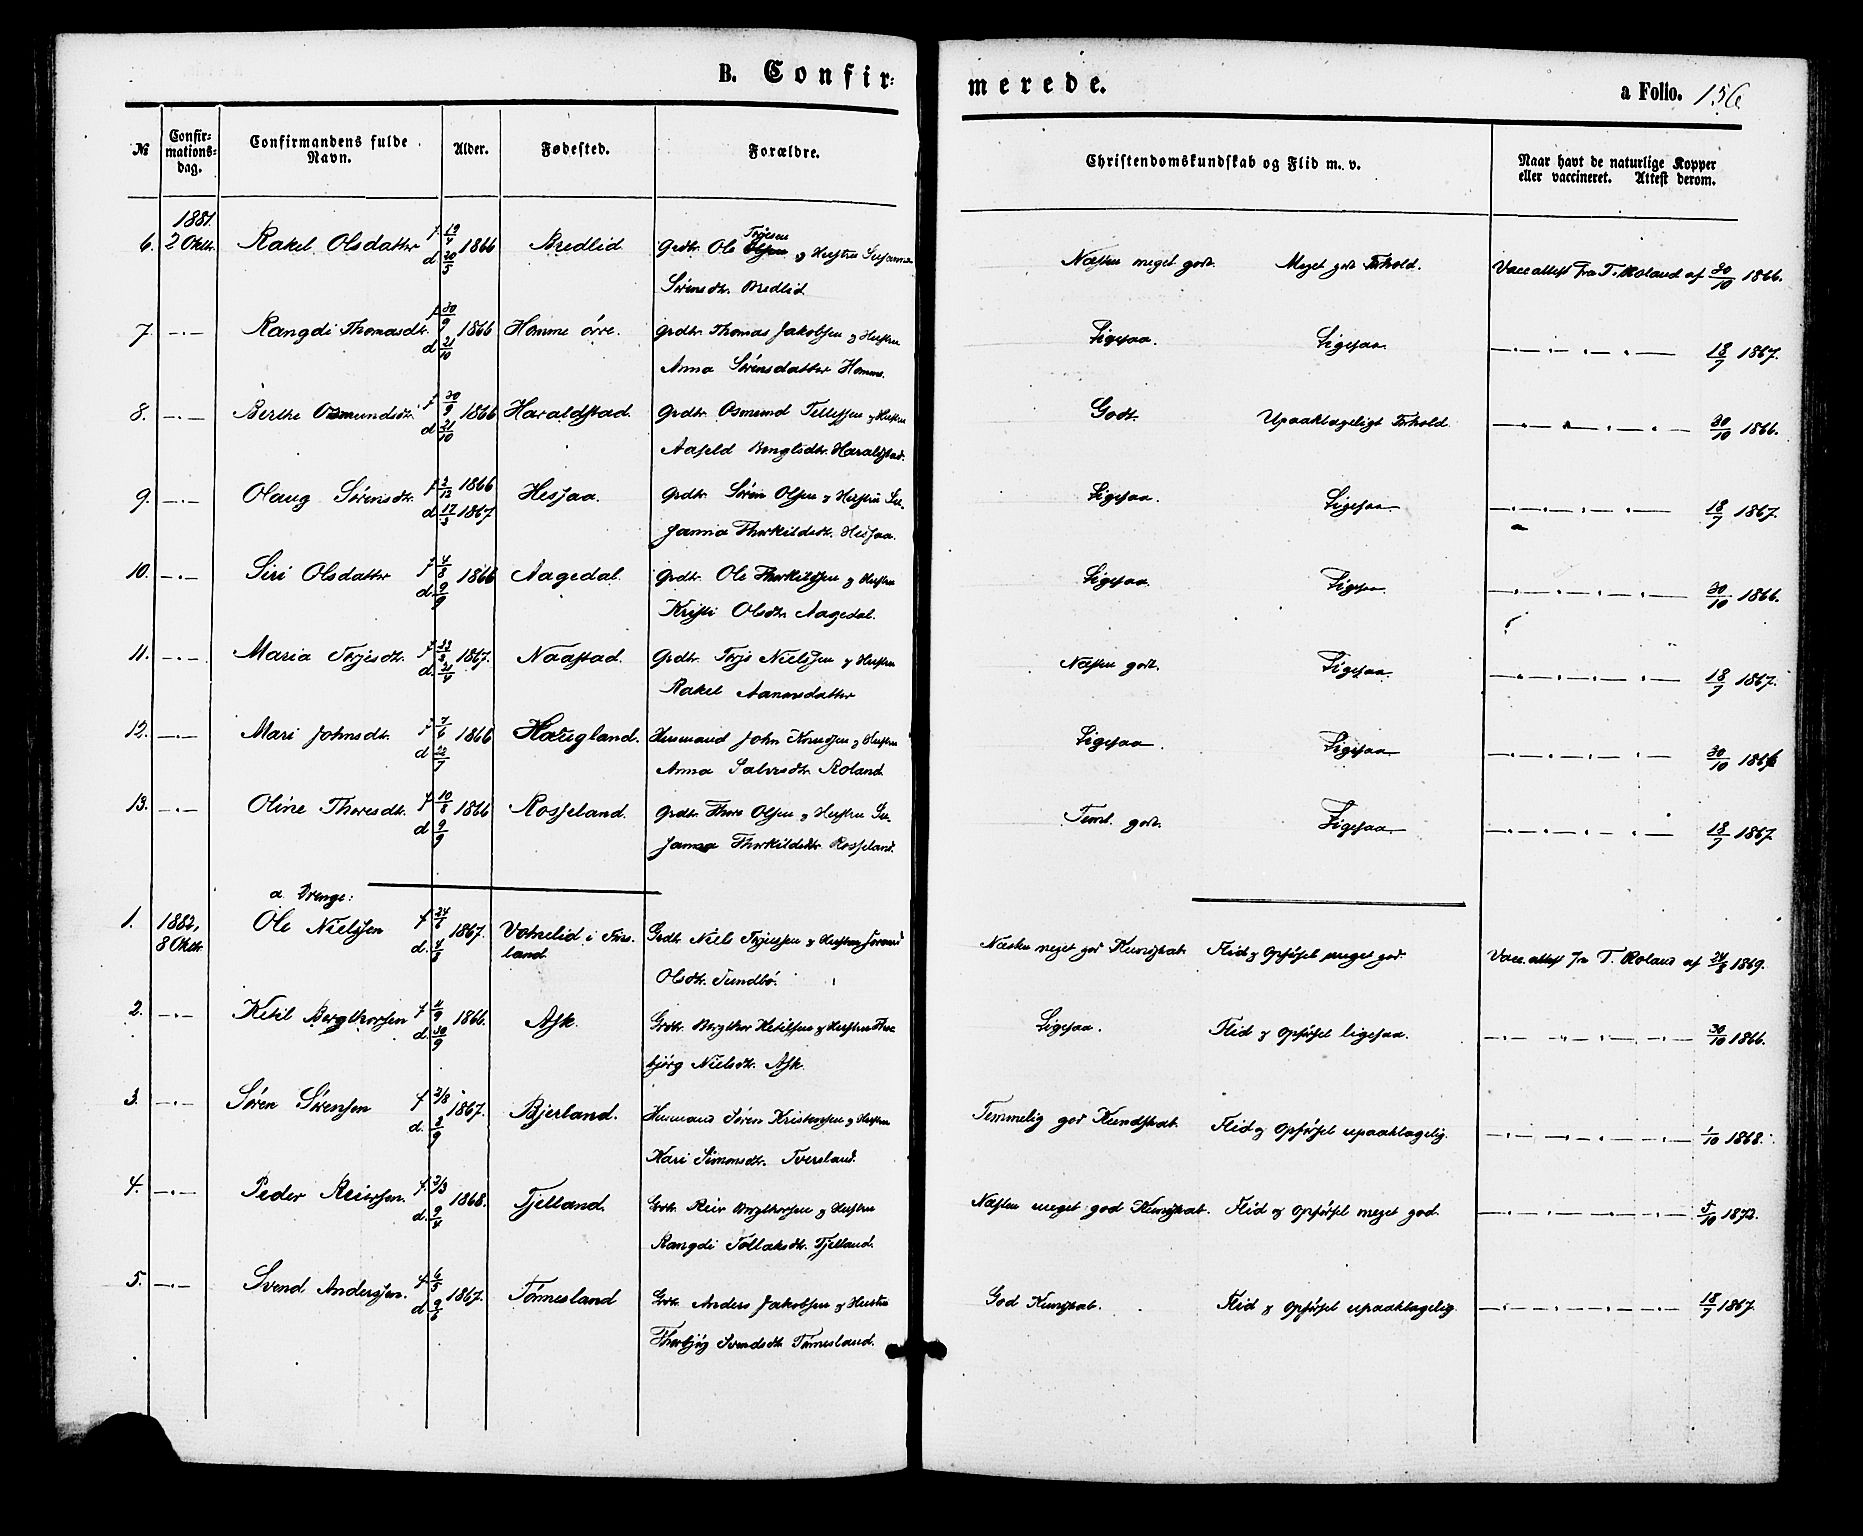 B. Confir:
merede.
a Folio. 156
№
Confir-
mations-
dag.
Confirmandens fulde
Navn.
Alder.
Fødested.
Forældre.
Christendomskundskab og Flid m. v.
Naar havt de naturlige Kopper
eller vaccineret. Attest derom.
1881.
6. 2 Oktbr. Rakel Olsdatter f. 19/4 1866 d. 20/5 Bredlid Grdbr. Ole Thjesen og Hustru Susanna
Sørensdtr. Bredlid
Næsten meget godt. Meget godt Forhold. Vacc attest fra T. Roland af 30/10 1866.
7. —„— Rangdi Thomasdtr. f. 30/9 1866 d. 21/10 Homme øvre. Grdbr. Thomas Jakobsen og Hustru
Anna Sørensdatter Homme.
Ligesaa. Ligesaa. —„—„—„— 18/7 1867.
8. —„— Berthe Osmundsdtr. f. 30/9 1866 d. 21/10 Haraldstad. Grdbr. Osmund Tellefsen og Hustru
Aaseld Bengtsdtr. Haraldstad.
Godt. Upaaklageligt Forhold. —„—„—„— 30/10 1866.
9. —„— Olaug Sørensdtr. f. 2/12 1866 d. 17/3 1867 Hesjaa. Grdbr. Søren Olsen og Hustru Su-
sanna Thorkildsdtr. Hesjaa.
Ligesaa. Ligesaa. —„—„—„— 18/7 1867.
10. —„— Siri Olsdatter f. 4/8 1866 d. 9/9 Aagedal. Grdbr. Ole Thorkildsen og Hustru
Kristi Olsdtr. Aagedal.
Ligesaa. Ligesaa. —„—„—„— 30/10 1866.
11. —„— Maria Thjisdtr. f. 23/3 1867. d. 21/4 Naastad. Grdbr. Thjs Nielssen og Hustru
Rakel Aanensdatter
Næsten godt. Ligesaa. —„—„—„— 18/7 1867.
12. —„— Mari Johnsdtr. f. 7/6 1866 d. 22/7 Haugland. Husmand John Knudsen og Hustru
Anna Salvesdtr. Roland.
Ligesaa. Ligesaa —„—„—„— 30/10 1866
13. —„— Oline Thoresdtr. f. 10/8 1866 d. 9/9 Rosseland. Grdbr. Thore Olsen og Hustru Su-
sanna Thorkildsdtr. Rosseland.
Teml. godt. Ligesaa. —„—„—„— 18/7 1867
a. Drenge:
1. 1882, 8 Oktbr. Ole Nielssen f. 24/6 1867. d. 4/8 Votnelid i Finsland. Grdbr. Niels Thjessen og Hustru
Olsdtr. Sundbø.
Næsten meget god Kundskab. Flid og Opførsel meget god. Vacc. attest fra T. Roland af 24/8 1869.
2. —„— Ketil Bergthorsen f. 11/9 1866. d. 30/9 Ask. Grdbr. Bergthor Ketilsen og Hustru Thor-
bjørg Nielsdtr. Ask.
Ligesaa. Flid og Opførsel ligesaa. —„—„—„— 30/10 1866.
3. —„— Søren Sørensen f. 2/8 1867. d. 8/9 Bjerland. Husmand Søren Kristensen og Hustru
Kari Simonsdtr. Tversland.
Temmelig god Kundskab. Flid og Opførsel upaaklagelig. —„—„—„— 1/10 1868.
4. —„— Peder Reiersen. f. 2/3 1868. d. 9/4 Fjelland. Grdbr. Reier Bergthorsen og Hustru
Rangdi Tollaksdtr. Fjelland.
Næsten meget god Kundskab. Flid og Opførsel meget god. —„—„—„— 5/10 1872.
5. —„— Svend Anderssen. f. 6/5 1867. d. 9/6 Tønnesland Grdbr. Anders Jakobsen og Hustru
Thorbjøg Svendsdtr. Tønnesland.
God Kundskab. Flid og Opførsel upaaklagelig. —„—„—„— 18/7 1867.